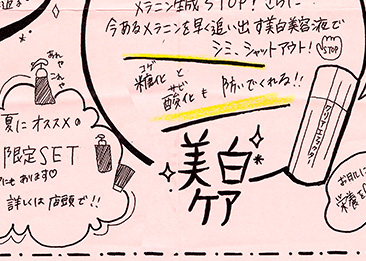 メラニン生成STOP！さらに
今あるメラニンを早く追い出す美白美容液で
シミ、シャットアウト！
STOP
コゲ サビ
糖化と酸化も防いでくれる!!
美白
ケア
クリアエッセンス
あれや
これや
夏にオススメの
限定SET
にもあります♡
詳しくは店頭で!!
お肌に
栄養を